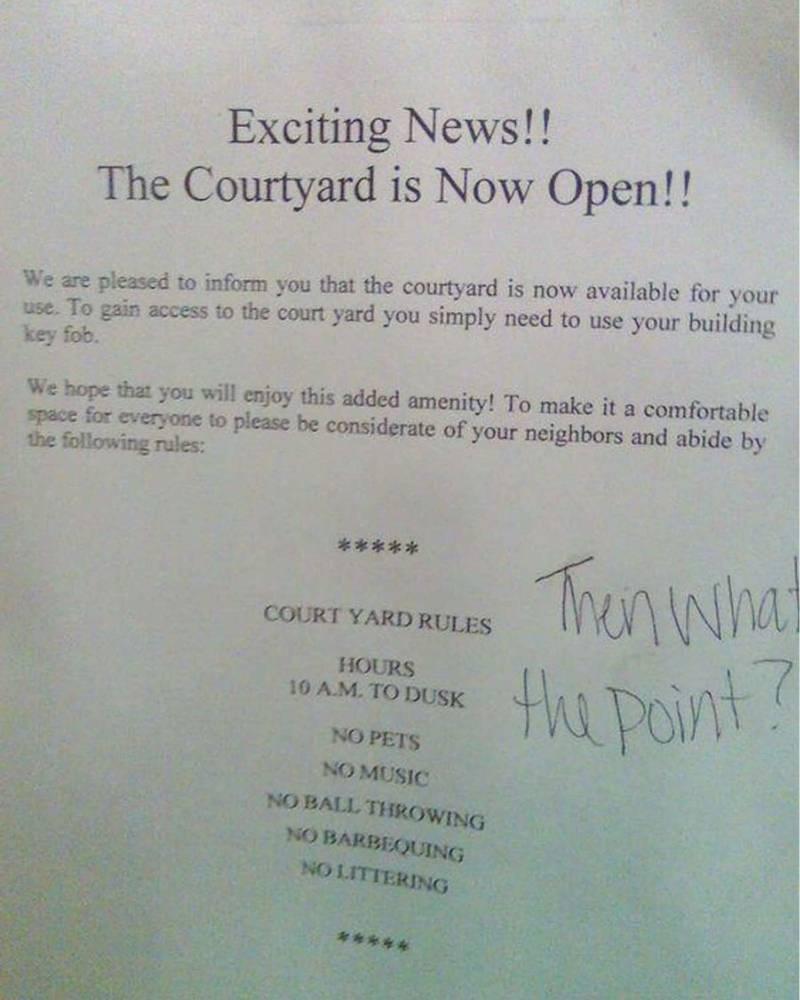 Exciting News!!
The Courtyard is Now Open!!
We are pleased to inform you that the courtyard is now available for your
use. To gain access to the court yard you simply need to use your building
key fob.
We hope that you will enjoy this added amenity! To make it a comfortable
space for everyone to please be considerate of your neighbors and abide by
the following rules:
*****
COURT YARD RULES
HOURS
10 A.M. TO DUSK
NO PETS
NO MUSIC
NO BALL THROWING
NO BARBEQUING
NO LITTERING
*****
Then What
the point?